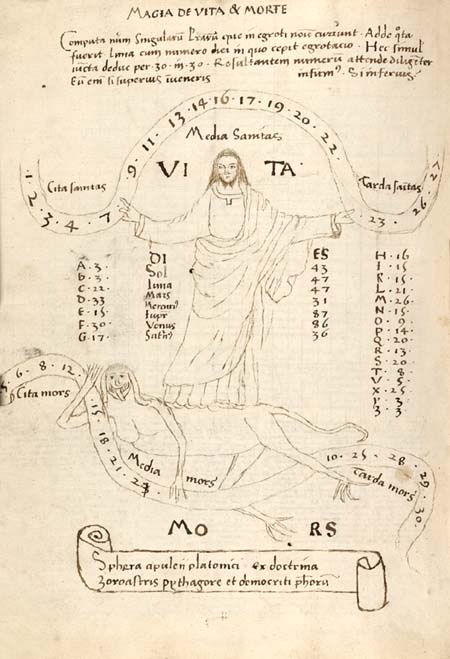 MAGIA DE VITA & MORTE
Computa num Singularū Lrarū que in egroti noīe curūnt. Adde qta
fuerit luna cum numero diei in quo cepit egrotacio. Hec simul
iūcta deduc per .30. in 30. Resultantem numerū attende diligēter
Eū em si superius iveneris infirm9. Si inferius.
1 · 2 · 3 · 4 · 7
Cita sanitas
9 · 11 · 13 · 14 · 16 · 17 · 19 · 20 · 22 ·
Media Sanitas
Tarda saitas
23 · 26 · 27
VI TA
DI ES
Sol 43
luna 47
Mars 47
Mercuri9 31
Iupr 87
Venus 86
Satn9 36
A · 3 ·
b · 3 ·
C · 22 ·
D · 33
E · 15 ·
F · 30 ·
G · 17 ·
H · 16
I · 15
K · 15
L · 21
M · 26
N · 15
O · 9
P · 14
Q · 20
R · 13
S · 20
T · 8
V · 5
X · 25
Y · 3
Z · 3
5 · 6 · 8 · 12 ·
Cita mors
15 · 18 · 21 · 24
Media mors
10 · 25 · 28 · 29 · 30 ·
Tarda mors
MO RS
Sphera apulei platonici ex doctrina
Zoroastris pythagore et democriti phorū